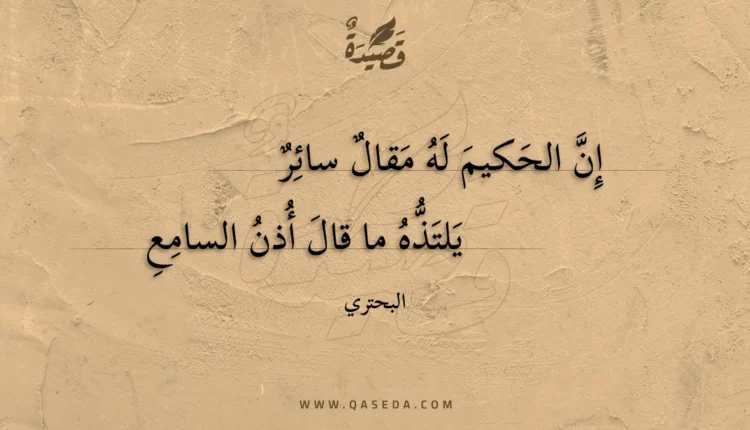 قَصِيدَةٌ
إِنَّ الحَكيمَ لَهُ مَقالٌ سائِرٌ
يَلتَذُّهُ ما قالَ أُذنُ السامِعِ
البحتري
WWW.QASEDA.COM